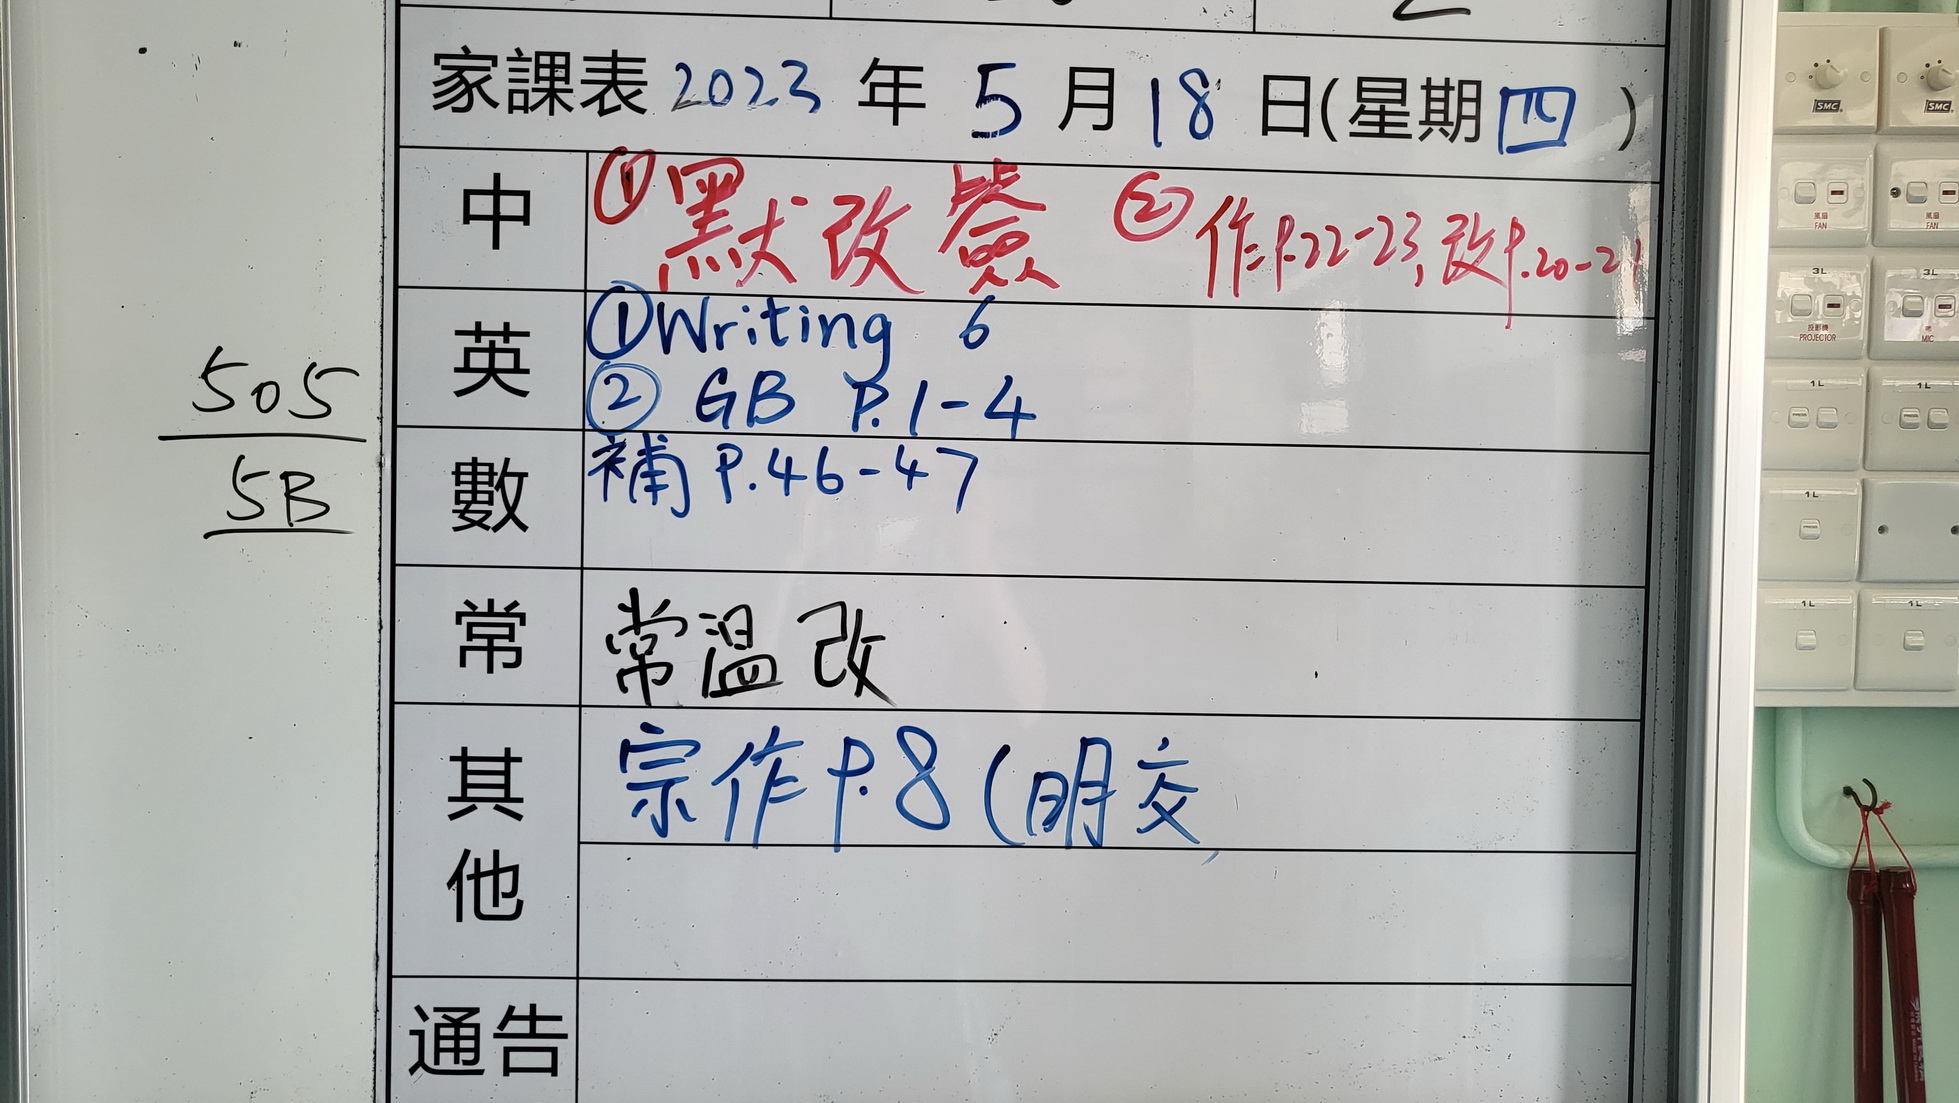 家課表 2023 年 5 月 18 日(星期四)
中 ①默改簽 ②作P.22-23,改P.20-21
英 ①Writing 6
②GB P.1-4
數 補P.46-47
常 常溫改
其他 宗作P.8(明交
通告
505
5B
SMC SMC
風扇 FAN 風扇 FAN
3L 3L
投影機 PROJECTOR MIC
1L 1L
1L
1L 1L